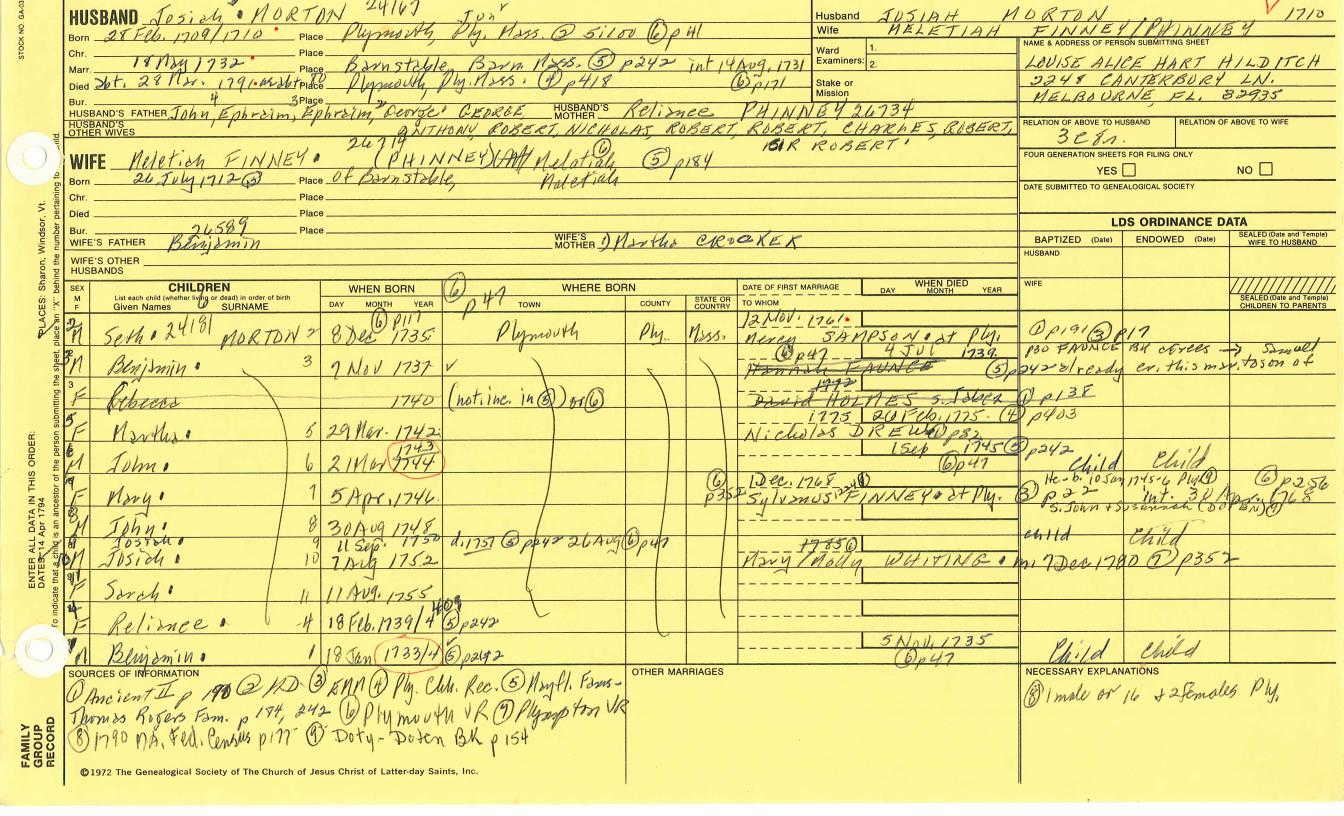 STOCK NO. GA-03
HUSBAND Josiah MORTON 24167 Jun
Born 28 Feb. 1709/1710 Place Plymouth, Ply. Mass. ② ⑥ p41
Chr. Place
Marr. 18 May 1732 Place Barnstable, Barn. Mass. ⑤ p242 int 19 Aug, 1731
Died 28 Mar. 1791 Place Plymouth, Ply. Mass. ④ p418 ⑥ p171
Bur. Place
HUSBAND'S FATHER John, Ephraim, Ephraim, George GEORGE HUSBAND'S MOTHER Reliance PHINNEY 26734
HUSBAND'S OTHER WIVES ANTHONY, ROBERT, NICHOLAS, ROBERT, ROBERT, CHARLES, ROBERT,
SIR ROBERT
26714
WIFE Meletiah FINNEY (PHINNEY) Meletiah ⑥ ⑤ p184
Born 26 July 1712 ③ Place of Barnstable, Meletiah
Chr. Place
Died Place
Bur. Place
26589
WIFE'S FATHER Benjamin WIFE'S MOTHER 1) Martha CROCKER
WIFE'S OTHER HUSBANDS
Husband JOSIAH MORTON 1710
Wife MELETIAH FINNEY/PHINNEY
Ward Examiners: 1.
2.
Stake or Mission
NAME & ADDRESS OF PERSON SUBMITTING SHEET
LOUISE ALICE HART HILDITCH
2248 CANTERBURY LN.
MELBOURNE, FL. 32935
RELATION OF ABOVE TO HUSBAND RELATION OF ABOVE TO WIFE
FOUR GENERATION SHEETS FOR FILING ONLY
YES NO
DATE SUBMITTED TO GENEALOGICAL SOCIETY
LDS ORDINANCE DATA
BAPTIZED (Date) ENDOWED (Date) SEALED (Date and Temple) WIFE TO HUSBAND
HUSBAND
WIFE
SEALED (Date and Temple) CHILDREN TO PARENTS
SEX M F CHILDREN WHEN BORN WHERE BORN DATE OF FIRST MARRIAGE WHEN DIED
List each child (whether living or dead) in order of birth
Given Names SURNAME DAY MONTH YEAR TOWN COUNTY STATE OR COUNTRY TO WHOM DAY MONTH YEAR
⑥ p47
⑥ p117 12 Nov. 1761
M Seth 24181 MORTON 2 8 Dec 1735 Plymouth Ply. Mass. Mercy SAMPSON at Ply. ① p191 ③ p17
⑥ p47 4 Jul 1739
M Benjamin 3 7 Nov 1737 Hannah FAUNCE ⑤ p242 already
1772
F Rebecca 1740 (not inc. in ⑤) or ⑥ David HOLMES ① p138
1775 20 Feb. 1775 ④ p403
F Martha 5 29 Mar. 1742 Nicholas DREW ① p82
1743 1 Sep 1745 ⑤ p242
M John 6 21 Mar 1744 ⑥ p47 Child Child
⑥ p352 1 Dec. 1768
F Mary 7 5 Apr. 1746 Sylvanus FINNEY at Ply. ③ p22 int. 30 Apr. 1768 ⑥ p256
S. John + Susannah (DOTEN) ⑨
M John 8 30 Aug 1748
Josiah 9 11 Sep. 1750 d. 1751 ⑤ p242 26 Aug ⑥ p47 child Child
1785 ⑥
M Josiah 10 7 Aug 1752 Mary/Molly WHITING m. 7 Dec 1780 ⑦ p352
F Sarah 11 11 Aug. 1755
F Reliance 4 18 Feb. 1739/40 ⑤ p242
5 Nov. 1735
M Benjamin 1 18 Jan 1733/4 ⑤ p242 ⑥ p47 Child Child
SOURCES OF INFORMATION
① Ancient II p 190 ② MD ③ EMM ④ Ply. Chh. Rec. ⑤ Mayfl. Fams-
Thomas Rogers Fam. p 184, 242 ⑥ Plymouth VR ⑦ Plympton VR
⑧ 1790 MA. Fed. Census p177 ⑨ Doty-Doten Bk p 154
OTHER MARRIAGES
NECESSARY EXPLANATIONS
⑧ 1 male or 16 + 2 females Ply.
©1972 The Genealogical Society of The Church of Jesus Christ of Latter-day Saints, Inc.
FAMILY GROUP RECORD
ENTER ALL DATA IN THIS ORDER:
DATES: 14 Apr 1794
PLACES: Sharon, Windsor, Vt.
To indicate that a child is an ancestor of the person submitting the sheet, place an "X" behind the number pertaining to